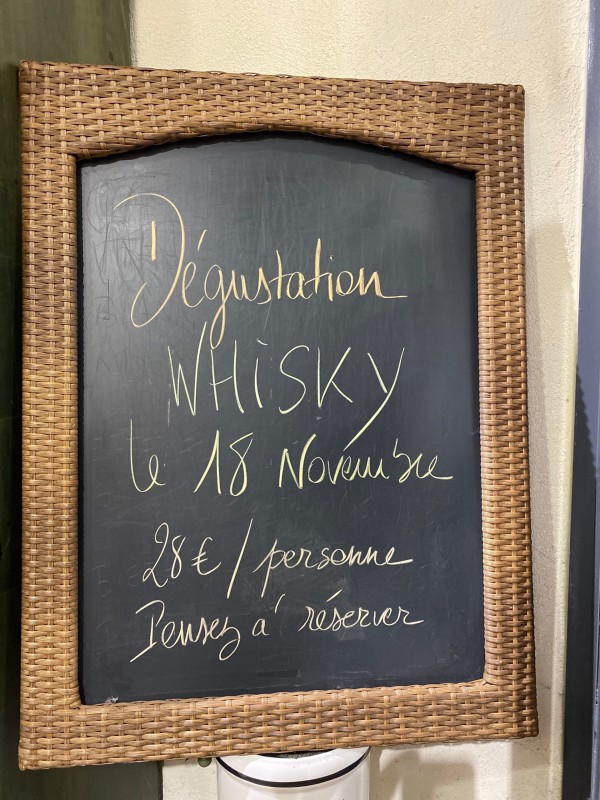 Dégustation
WHiSKY
le 18 Novembre
28€/personne
Pensez à réserver